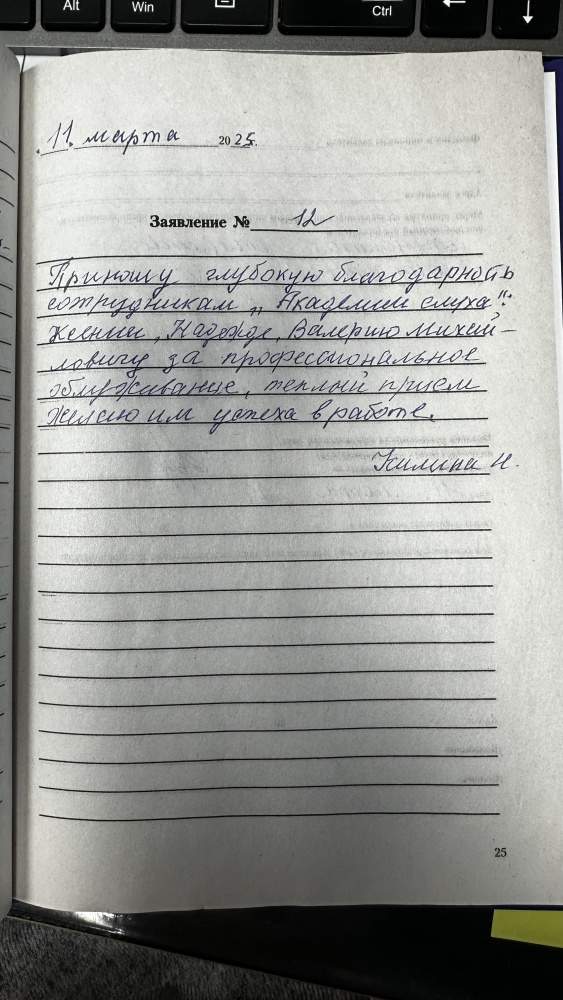 Alt
Win
Ctrl
11 марта 2025.
Заявление № 12
Приношу глубокую благодарность
сотрудникам „Академии слуха".
Ксении, Надежде, Валерию Михай-
ловичу за профессиональное
обслуживание, теплый прием
Желаю им успеха в работе.
Килина Н.
25